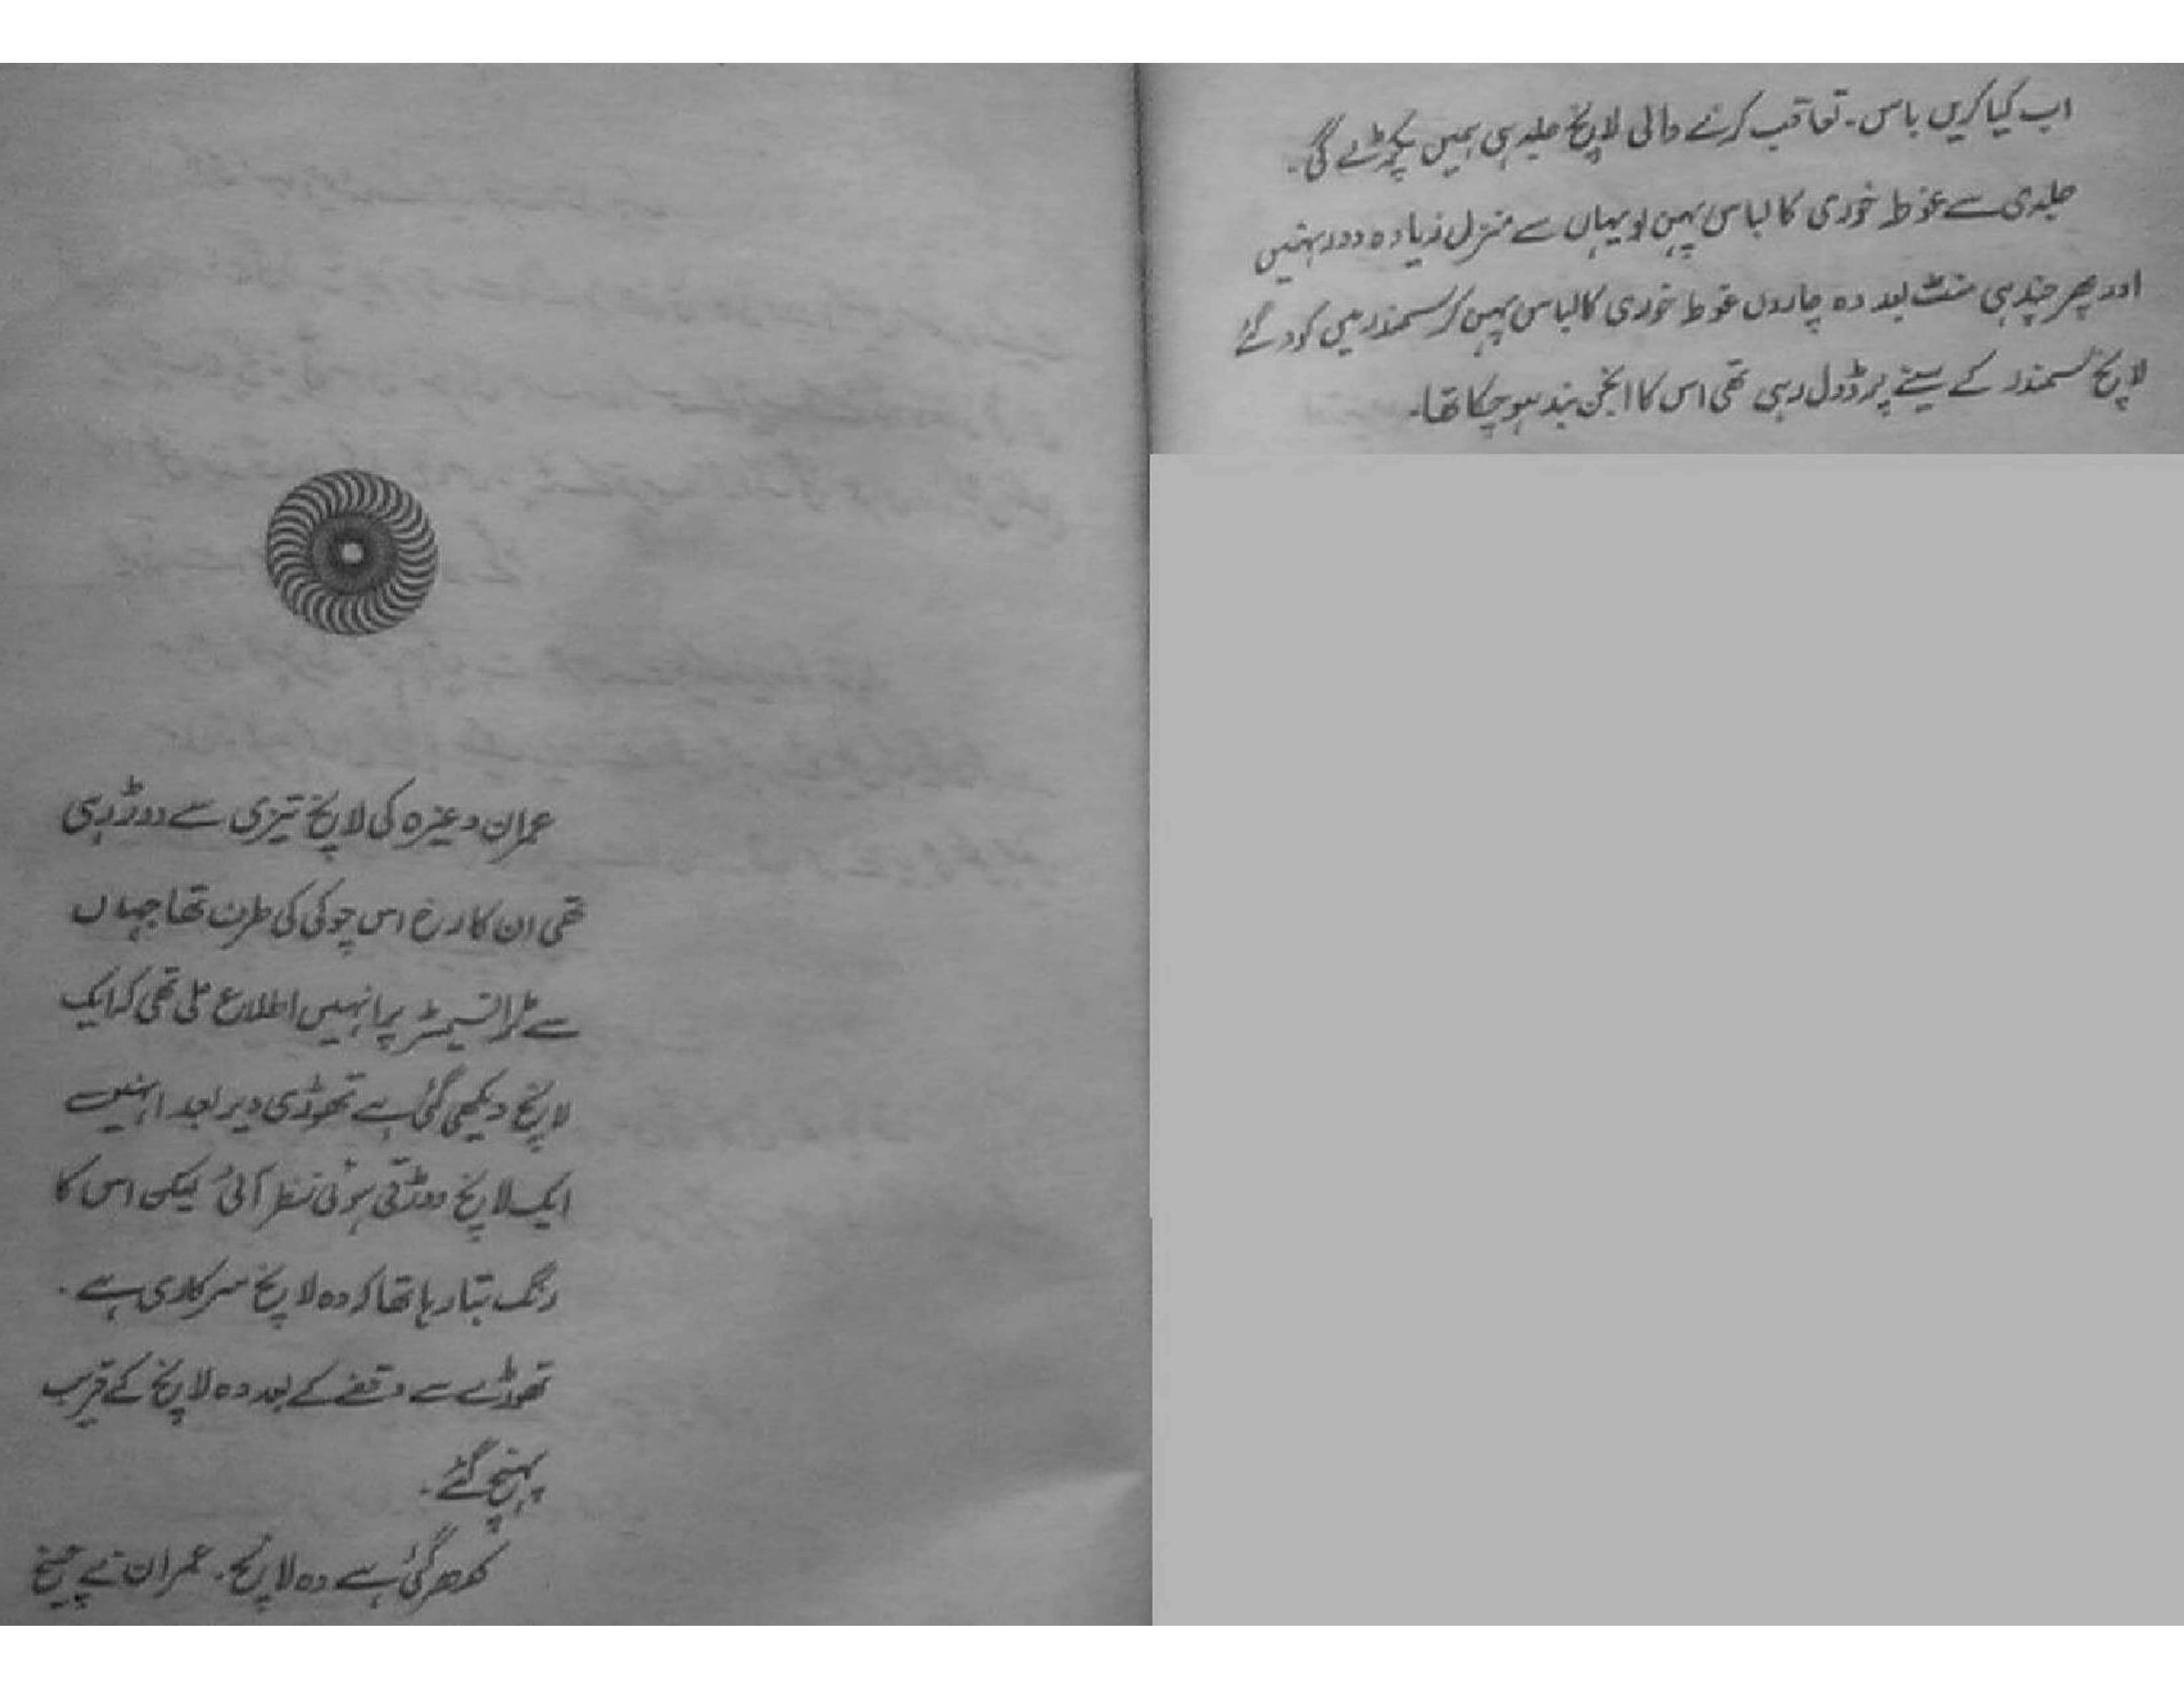 اب کیا کریں باس۔ تعاقب کرنے والی لانچ جلد ہی ہمیں پکڑ لے گی۔
جلدی سے غوطہ خوری کا لباس پہن لو یہاں سے منزل زیادہ دور نہیں
اور پھر چند ہی منٹ بعد وہ چاروں غوطہ خوری کا لباس پہن کر سمندر میں کود گئے
لانچ سمندر کے سینے پر ڈول رہی تھی اس کا انجن بند ہو چکا تھا۔
عمران وغیرہ کی لانچ تیزی سے دوڑ رہی
تھی ان کا رخ اس چوکی کی طرف تھا جہاں
سے ٹرانسمیٹر پر انہیں اطلاع ملی تھی کہ ایک
لانچ دیکھی گئی ہے تھوڑی دیر بعد انہیں
ایک لانچ دوڑتی ہوئی نظر آئی لیکن اس کا
رنگ بتا رہا تھا کہ وہ لانچ سرکاری ہے۔
تھوڑے سے وقفے کے بعد وہ لانچ کے قریب
پہنچ گئے۔
کدھر گئی ہے وہ لانچ۔ عمران نے چیخ